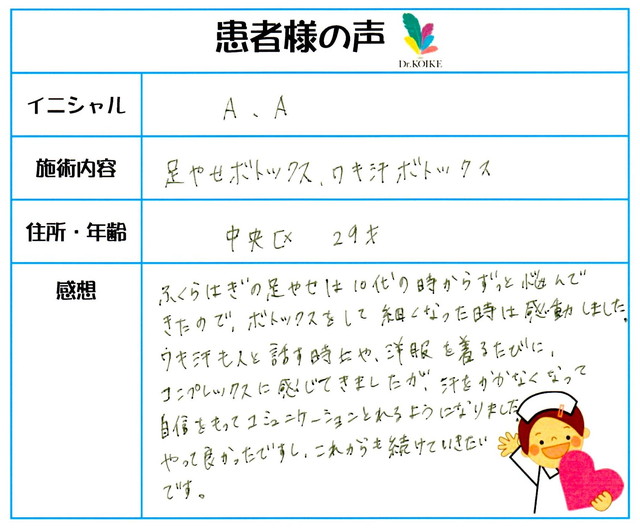 患者様の声
Dr.KOIKE
イニシャル
A、A
施術内容
足やせボトックス、ワキ汗ボトックス
住所・年齢
中央区 29才
感想
ふくらはぎの足やせは10代の時からずっと悩んで
きたので、ボトックスをして細くなった時は感動しました。
ワキ汗も人と話す時とや、洋服を着るたびに、
コンプレックスに感じてきましたが、汗をかかなくなって
自信をもってコミュニケーションとれるようになりました。
やって良かったですし、これからも続けていきたい
です。